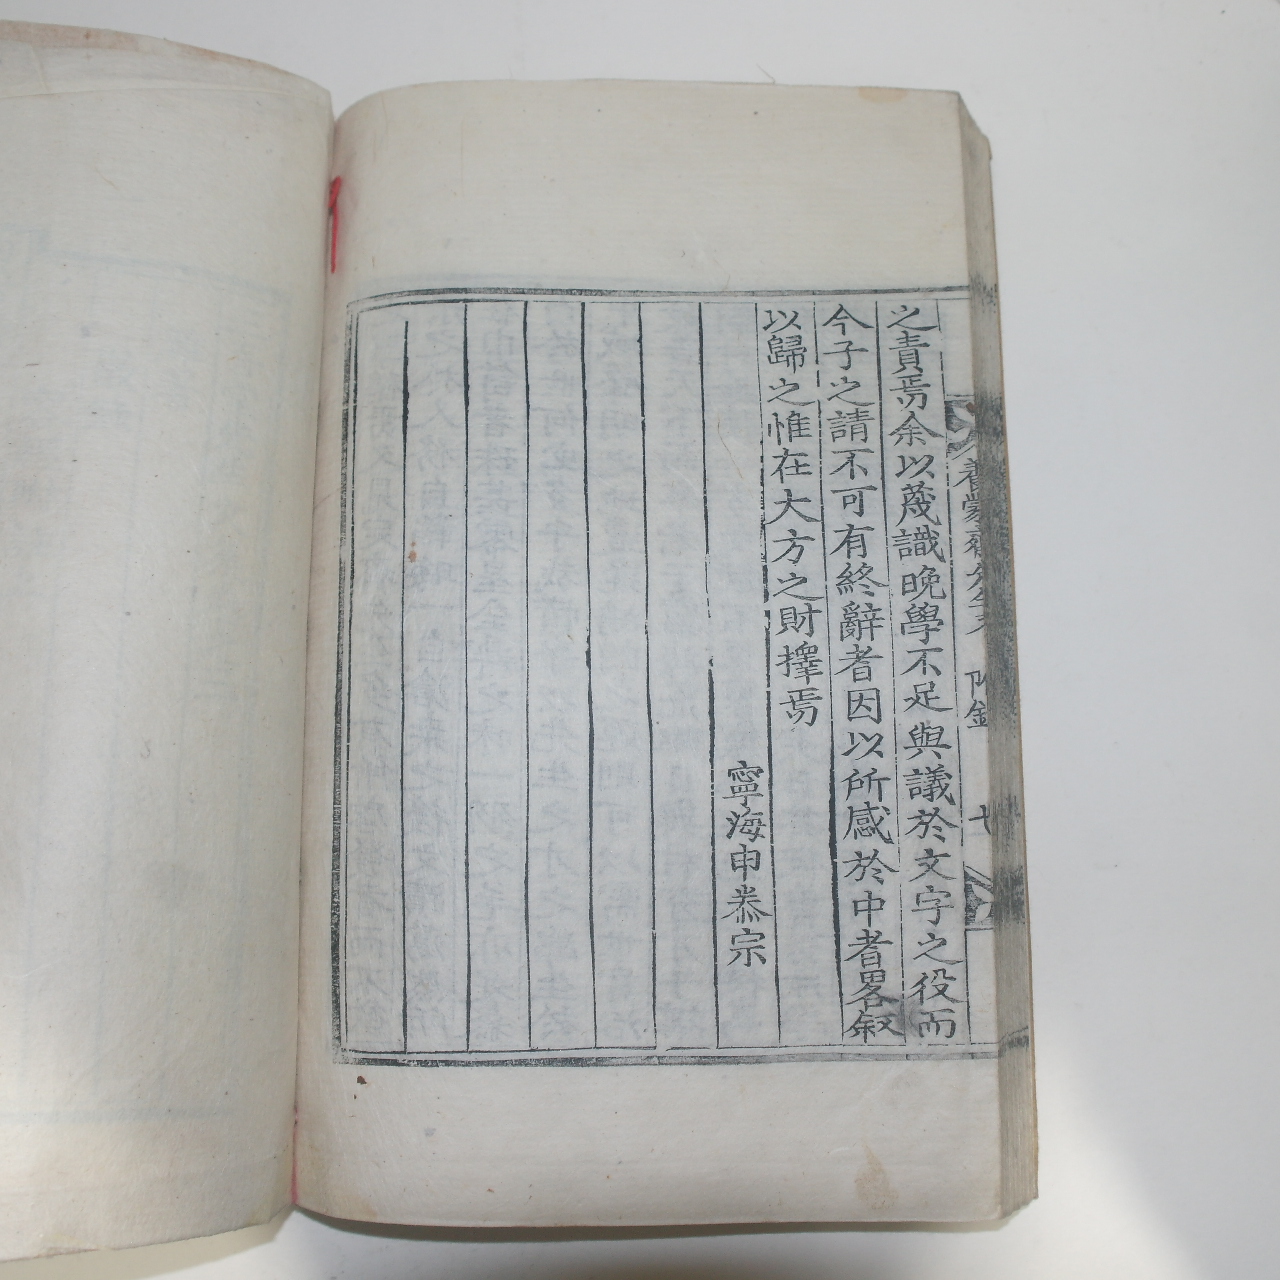 之責焉余以蔑識晚學不足與議於文字之役而
今子之請不可有終辭者因以所感於中者畧敘
以歸之惟在大方之財擇焉
寧海申泰宗
養蒙齋先生文
附錄
七